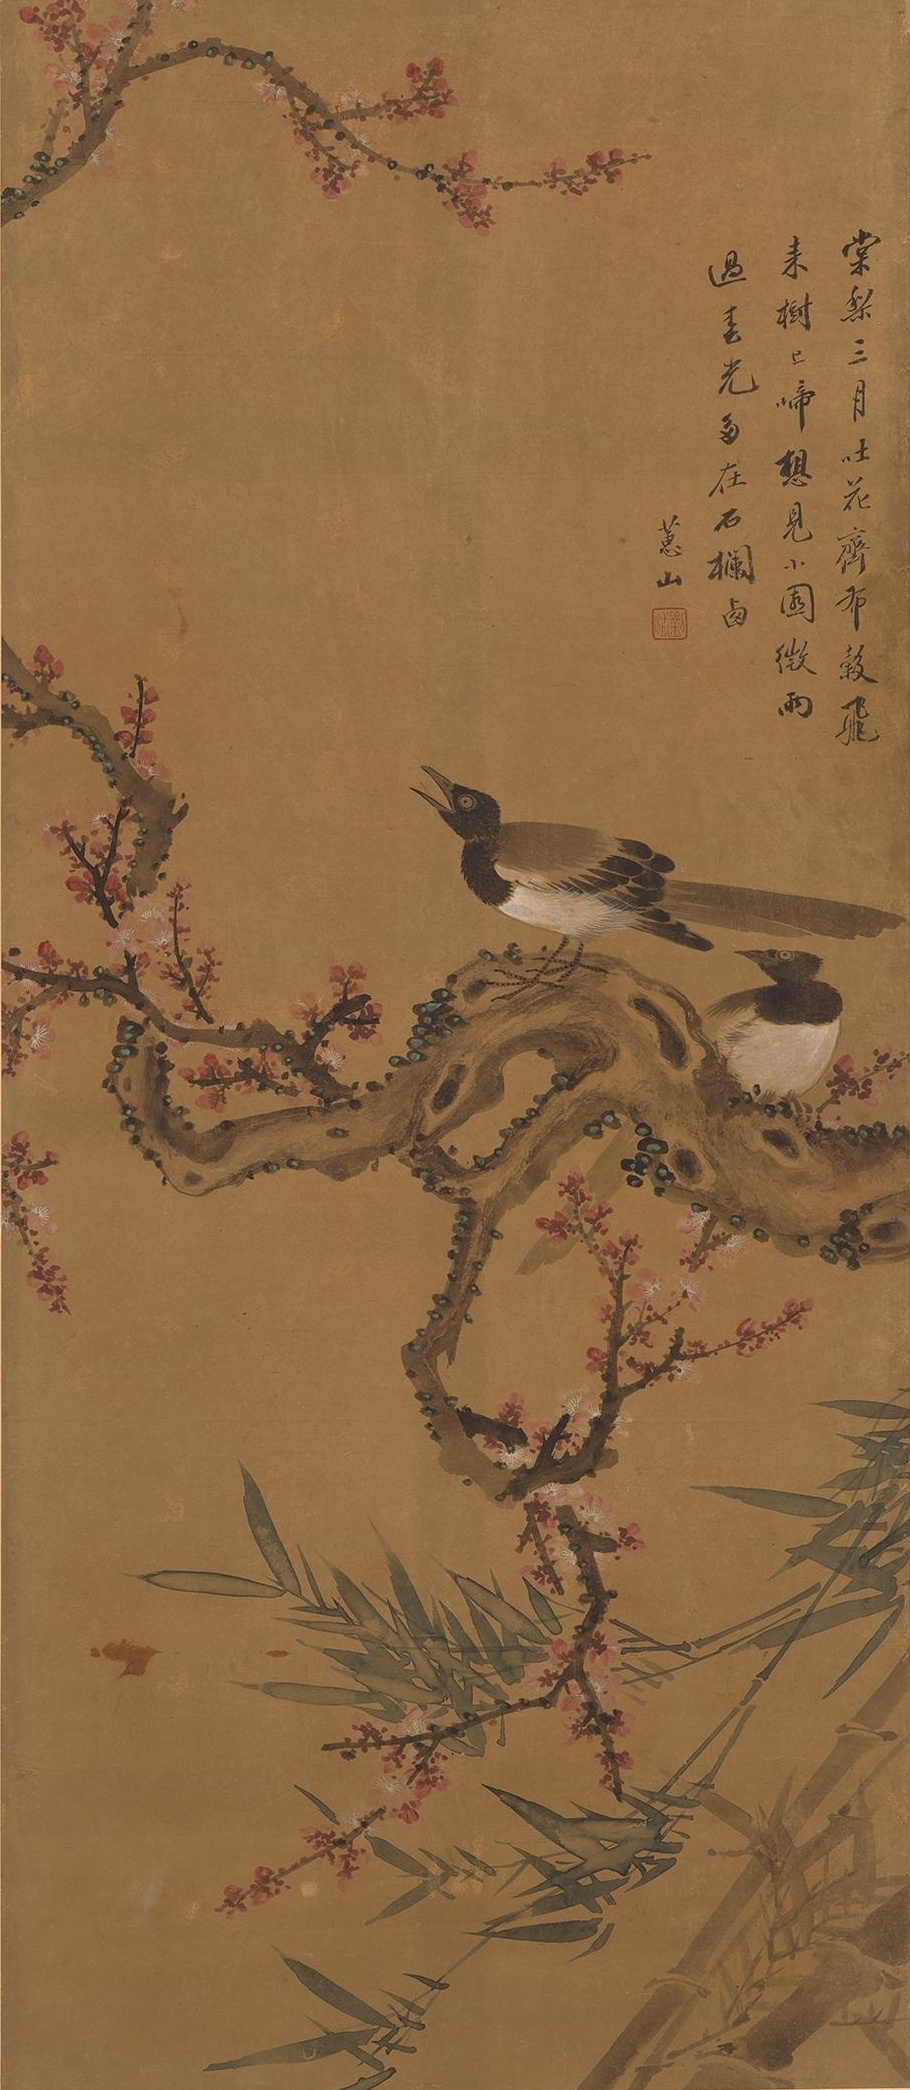 棠梨三月吐花齊布穀飛
来樹上啼想見小園微雨
過春光多在石欄卤
蕙山